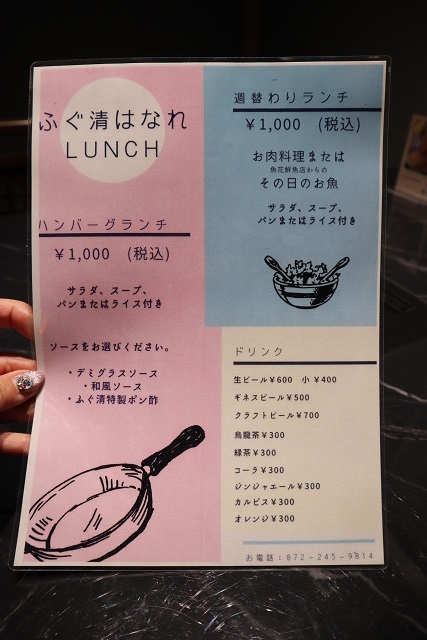 ふぐ清はなれ
LUNCH
ハンバーグランチ
¥1,000 (税込)
サラダ、スープ、
パンまたはライス付き
ソースをお選びください。
・デミグラスソース
・和風ソース
・ふぐ清特製ポン酢
週替わりランチ
¥1,000 (税込)
お肉料理または
魚花鮮魚店からの
その日のお魚
サラダ、スープ、
パンまたはライス付き
ドリンク
生ビール¥600 小 ¥400
ギネスビール¥500
クラフトビール¥700
烏龍茶¥300
緑茶¥300
コーラ¥300
ジンジャエール¥300
カルピス¥300
オレンジ¥300
お電話:072-245-9814